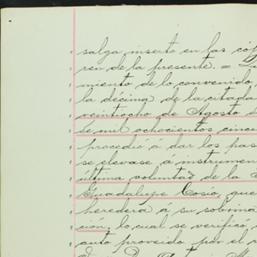 salga inserto en las cop
ren de la presente. =
miento de lo convenido,
la décima de la citada
veintiocho de Agosto d
de mil ochocientos cinc
procedió á dar los pas
se elevase á instrumen
última voluntad de la
Guadalupe Cosío, que
heredera á su sobrina
ción; lo cual se verificó,
auto proveido por el